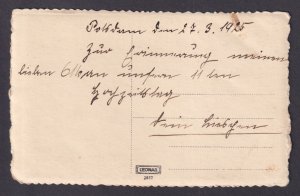 Potsdam den 27. 3. 1925
Zur Erinnerung meinem
lieben an unsren 11 ten
Hochzeitstag
Dein Lieschen
LEONAR